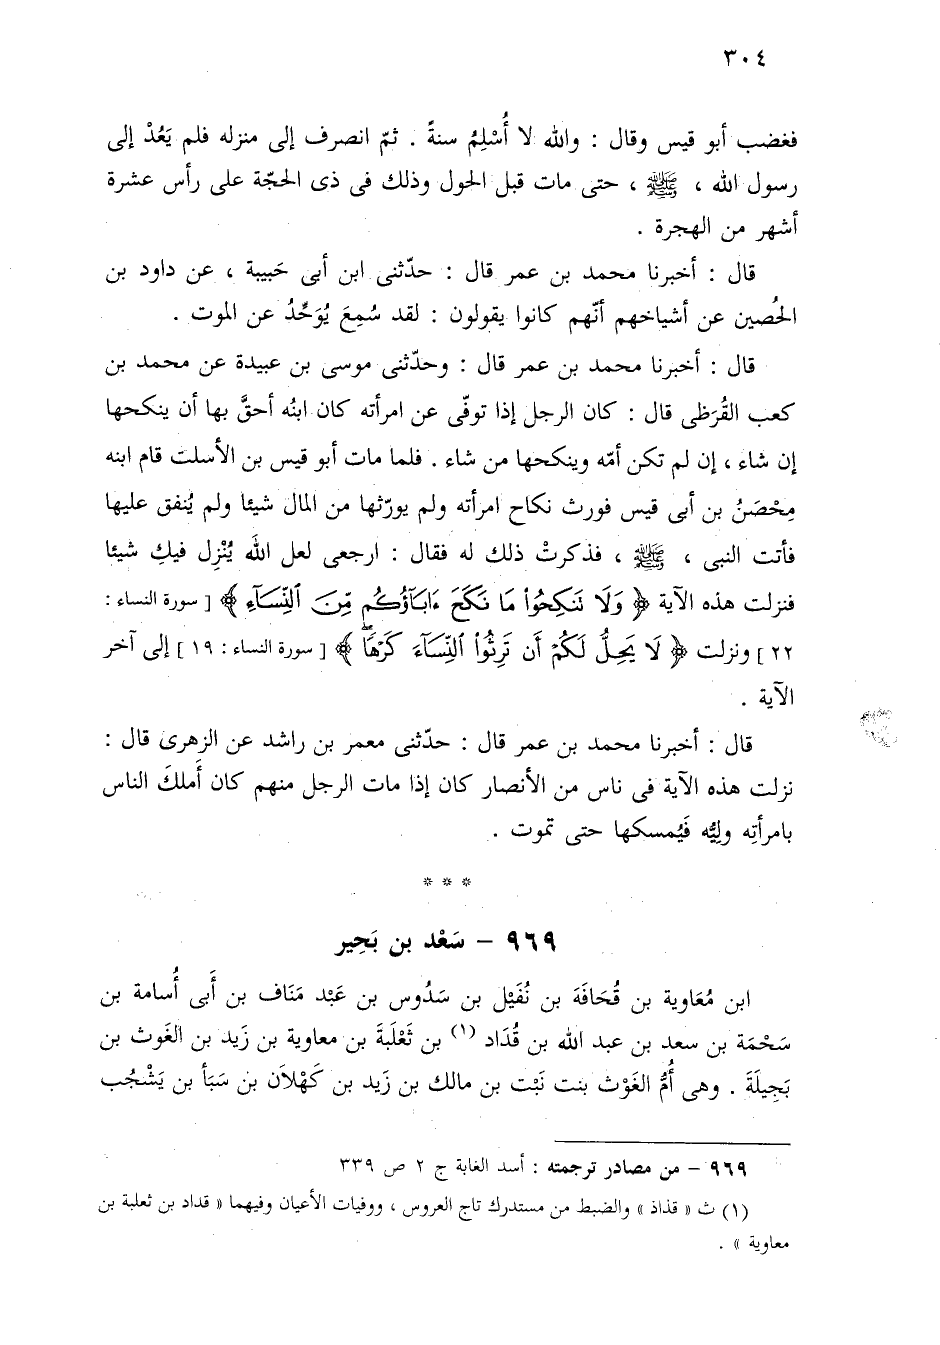 ٣٠٤
فغضب أبو قيس وقال : والله لا أُسْلِمُ سنةً . ثمّ انصرف إلى منزله فلم يَعُدْ إلى
رسول الله ، ﷺ ، حتى مات قبل الحول وذلك فى ذى الحجّة على رأس عشرة
أشهر من الهجرة .
قال : أخبرنا محمد بن عمر قال : حدّثنى ابن أبى حَبيبة ، عن داود بن
الحُصين عن أشياخهم أنّهم كانوا يقولون : لقد سُمِعَ يُوَحِّدُ عن الموت .
قال : أخبرنا محمد بن عمر قال : وحدّثنى موسى بن عبيدة عن محمد بن
كعب القُرَظى قال : كان الرجل إذا توفّى عن امرأته كان ابنُه أحقَّ بها أن ينكحها
إن شاء ، إن لم تكن أمّه وينكحها من شاء . فلما مات أبو قيس بن الأسلت قام ابنه
مِحْصَنُ بن أبى قيس فورث نكاح امرأته ولم يورّثها من المال شيئا ولم يُنفق عليها
فأتت النبى ، ﷺ ، فذكرتْ ذلك له فقال : ارجعى لعل الله يُنْزِل فيكِ شيئا
فنزلت هذه الآية ﴿ وَلَا تَنكِحُوا۟ مَا نَكَحَ ءَابَآؤُكُم مِّنَ ٱلنِّسَآءِ ﴾ [ سورة النساء :
٢٢ ] ونزلت ﴿ لَا يَحِلُّ لَكُمْ أَن تَرِثُوا۟ ٱلنِّسَآءَ كَرْهًا ﴾ [ سورة النساء : ١٩ ] إلى آخر
الآية .
قال : أخبرنا محمد بن عمر قال : حدّثنى معمر بن راشد عن الزهرى قال :
نزلت هذه الآية فى ناس من الأنصار كان إذا مات الرجل منهم كان أَملكَ الناس
بامرأتِه ولِيُّه فَيُمسكها حتى تموت .
* * *
٩٦٩ – سَعْد بن بَحِير
ابن مُعَاوية بن قُحَافَة بن نُفَيْل بن سَدُوس بن عَبْد مَنَاف بن أَبى أُسامة بن
سَحْمَة بن سعد بن عبد الله بن قُدَاد (١) بن ثَعْلَبَة بن معاوية بن زَيد بن الغَوث بن
بَجِيلَة . وهى أُمُّ الغَوْث بنت نَبْت بن مالك بن زَيد بن كَهْلاَن بن سَبَأ بن يَشْجُب
٩٦٩ – من مصادر ترجمته : أسد الغابة ج ٢ ص ٣٣٩
(١) ث « قذاذ » والضبط من مستدرك تاج العروس ، ووفيات الأعيان وفيهما « قداد بن ثعلبة بن
معاوية » .